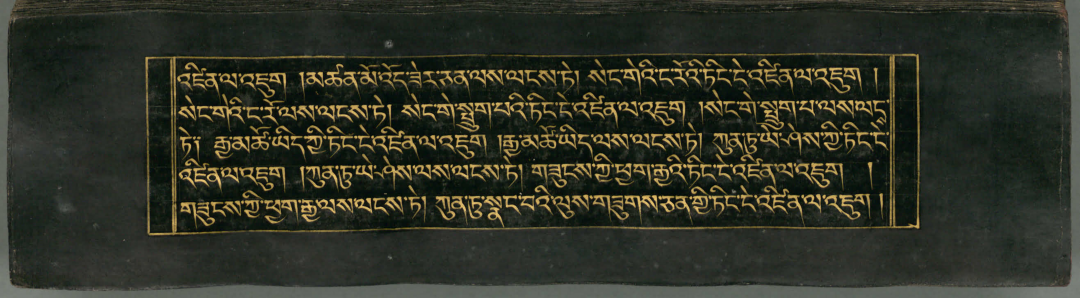 འཛིན་ལ་འཇུག །མཚན་མོ་འོད་ཟེར་ཅན་ལས་ལངས་ཏེ། སེང་གེའི་ང་རོའི་ཏིང་ངེ་འཛིན་ལ་འཇུག །
སེང་གེའི་ང་རོ་ལས་ལངས་ཏེ། སེང་གེ་སྤྲུག་པའི་ཏིང་ངེ་འཛིན་ལ་འཇུག །སེང་གེ་སྤྲུག་པ་ལས་ལངས་
ཏེ། རྒྱ་མཚོ་ཡིད་ཀྱི་ཏིང་ངེ་འཛིན་ལ་འཇུག །རྒྱ་མཚོ་ཡིད་ལས་ལངས་ཏེ། ཀུན་ཏུ་ཡེ་ཤེས་ཀྱི་ཏིང་ངེ་
འཛིན་ལ་འཇུག །ཀུན་ཏུ་ཡེ་ཤེས་ལས་ལངས་ཏེ། གཟུངས་ཀྱི་ཕྱག་རྒྱའི་ཏིང་ངེ་འཛིན་ལ་འཇུག །
གཟུངས་ཀྱི་ཕྱག་རྒྱ་ལས་ལངས་ཏེ། ཀུན་ཏུ་སྣང་བའི་ལུས་གཟུགས་ཅན་གྱི་ཏིང་ངེ་འཛིན་ལ་འཇུག །